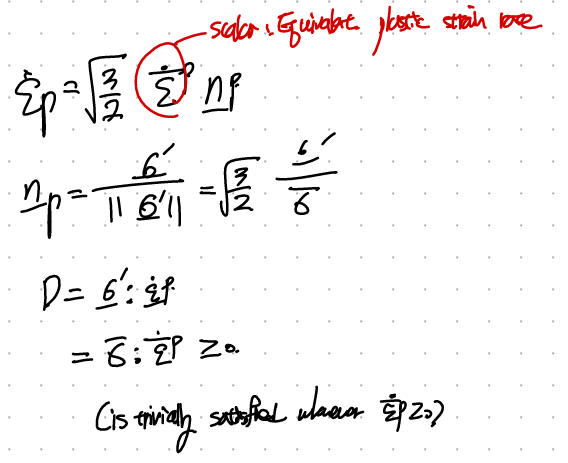 scalar, Equivalent plastic strain rate
ε̇p = √(3/2) ε̅̇ᵖ nᵖ
np = σ′ / ||σ′|| = √(3/2) σ′ / σ̅
D = σ′ : ε̇ᵖ
= σ̅ : ε̅̇ᵖ ≥ 0.
(is trivially satisfied whenever ε̅̇ᵖ ≥ 0)